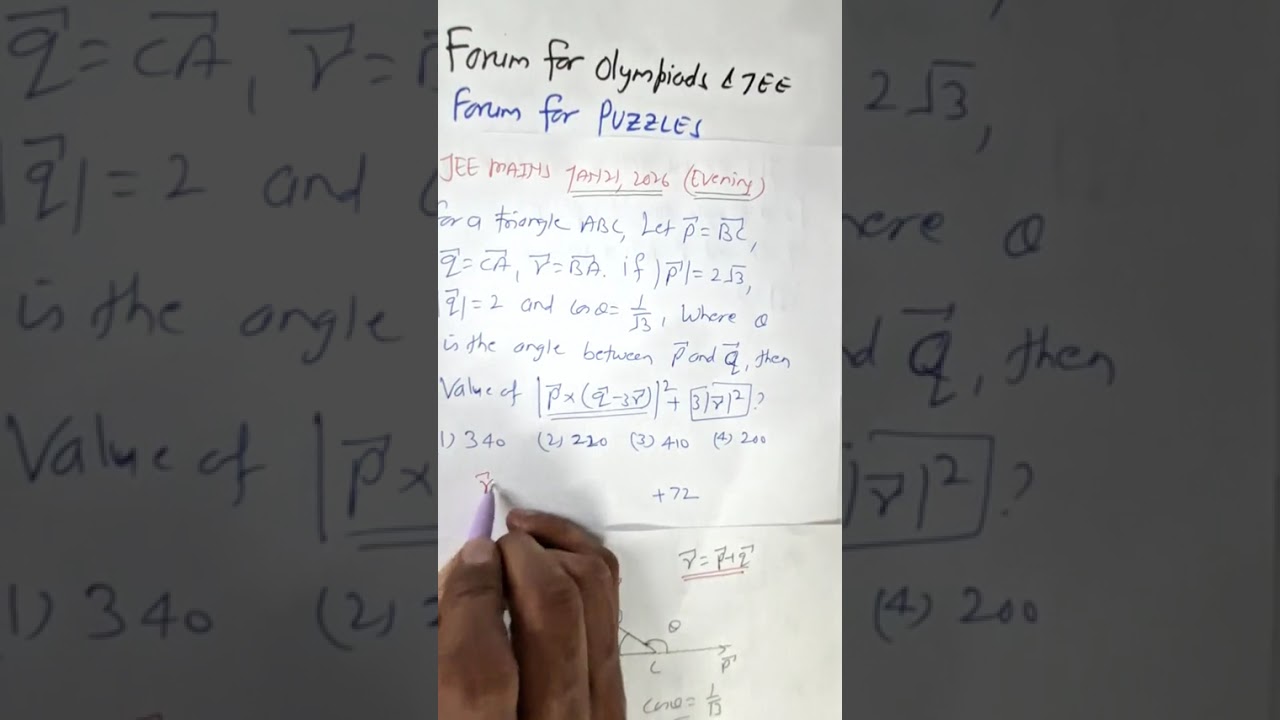 Forum for Olympiads & JEE
Forum for PUZZLES
JEE MAINS JAN 21, 2026 (Evening)
For a triangle ABC, Let p⃗ = BC⃗,
q⃗ = CA⃗, r⃗ = BA⃗. if |p⃗| = 2√3,
|q⃗| = 2 and cosθ = 1/√3, Where θ
is the angle between p⃗ and q⃗, then
Value of |p⃗ × (q⃗ - 3r⃗)|² + 3|r⃗|²?
1) 340 (2) 220 (3) 410 (4) 200
r⃗
+72
r⃗ = p⃗ + q⃗
θ
C
p⃗
cosθ = 1/√3